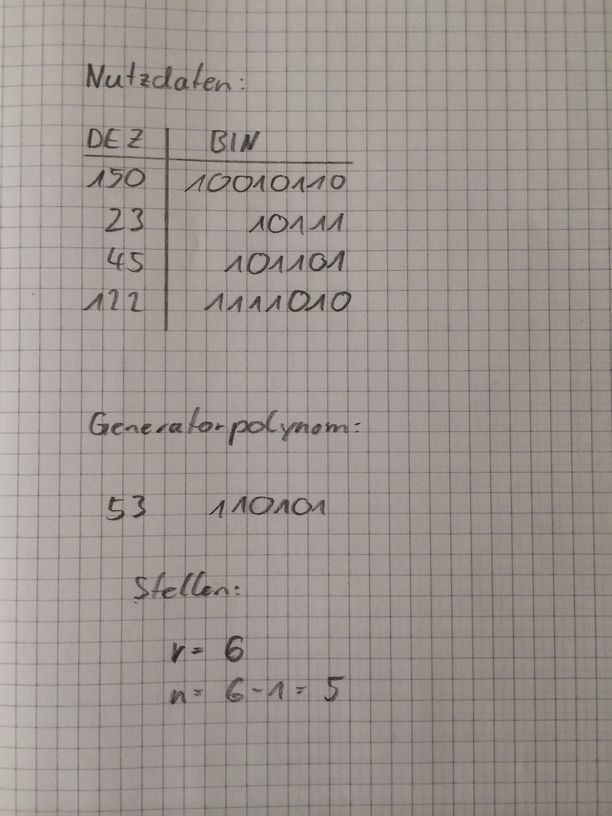 Nutzdaten:
DEZ BIN
150 10010110
23 10111
45 101101
122 1111010
Generatorpolynom:
53 110101
Stellen:
r = 6
n = 6 - 1 = 5